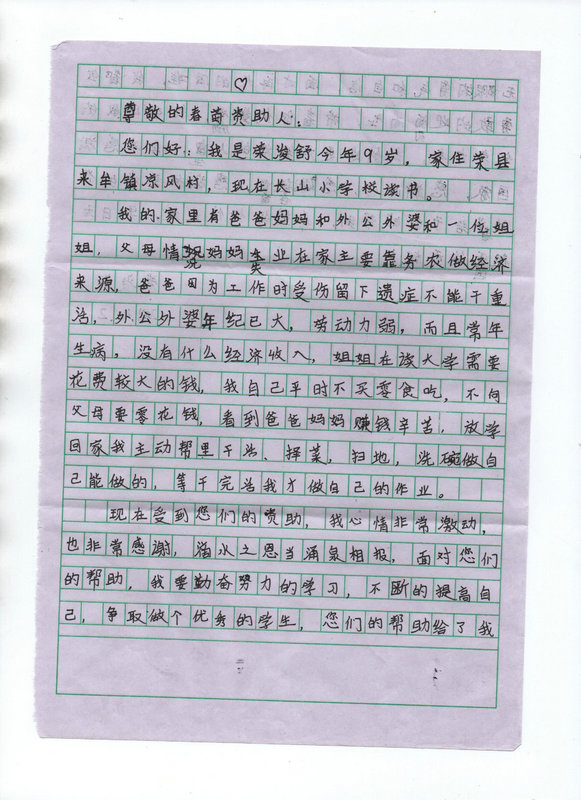 尊敬的春苗赍助人：
您们好：我是荣浚舒今年9岁，家住荣县
来牟镇凉风村，现在长山小学校读书。
我的家里有爸爸妈妈和外公外婆和一位姐
姐，父母情况妈妈失业在家主要靠务农做经济
来源，爸爸因为工作时受伤留下遗症不能干重
活，外公外婆年纪已大，劳动力弱，而且常年
生病，没有什么经济收入，姐姐在读大学需要
花费较大的钱，我自己平时不买零食吃，不向
父母要零花钱，看到爸爸妈妈赚钱辛苦，放学
回家我主动帮里干活、择菜，扫地，洗碗做自
己能做的，等干完活我才做自己的作业。
现在受到您们的赍助，我心情非常激动，
也非常感谢，滴水之恩当涌泉相报，面对您们
的帮助，我要勤奋努力的学习，不断的提高自
己，争取做个优秀的学生，您们的帮助给了我